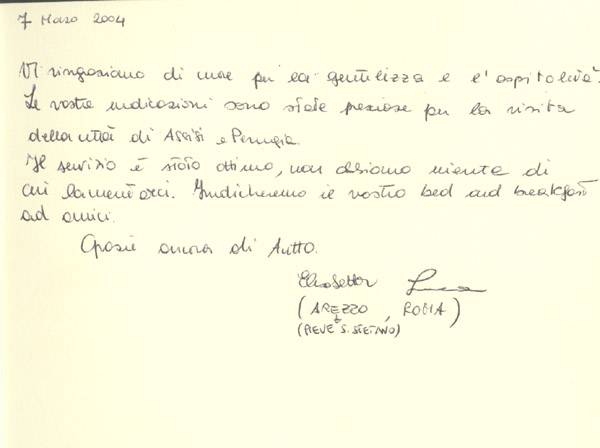 7 Marzo 2004
Vi ringraziamo di cuore per la gentilezza e l'ospitalità.
Le vostre indicazioni sono state preziose per la visita
della città di Assisi e Perugia.
Il servizio è stato ottimo, non abbiamo niente di
cui lamentarci. Indicheremo il vostro bed and breakfast
ad amici.
Grazie ancora di tutto.
Elisabetta Luca
(AREZZO, ROMA)
(PIEVE S. STEFANO)